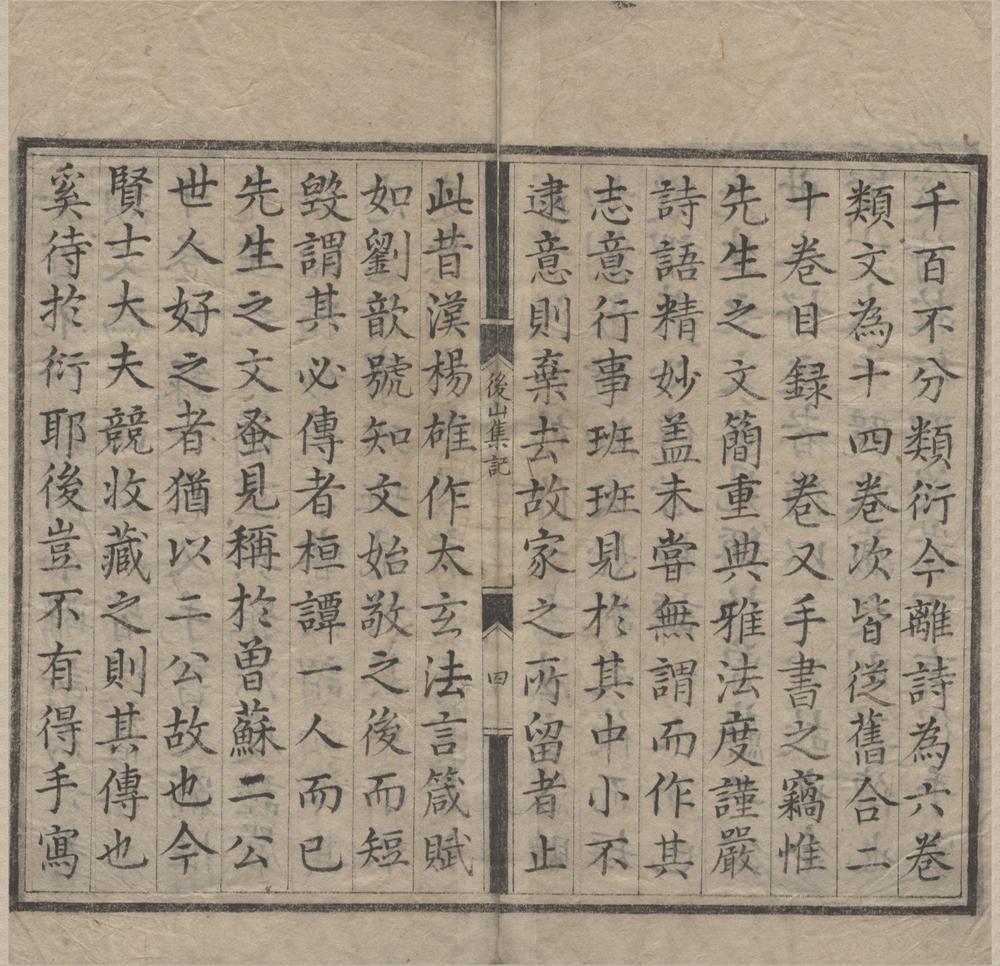 千百不分類衍今離詩為六卷
類文為十四卷次皆從舊合二
十卷目録一卷又手書之竊惟
先生之文簡重典雅法度謹嚴
詩語精妙盖未嘗無謂而作其
志意行事班班見於其中小不
逮意則棄去故家之所留者止
後山集記
四
此昔漢楊雄作太玄法言箴賦
如劉歆號知文始敬之後而短
毀謂其必傳者桓譚一人而已
先生之文蚤見稱於曾蘇二公
世人好之者猶以二公故也今
賢士大夫競收藏之則其傳也
奚待於衍耶後豈不有得手寫